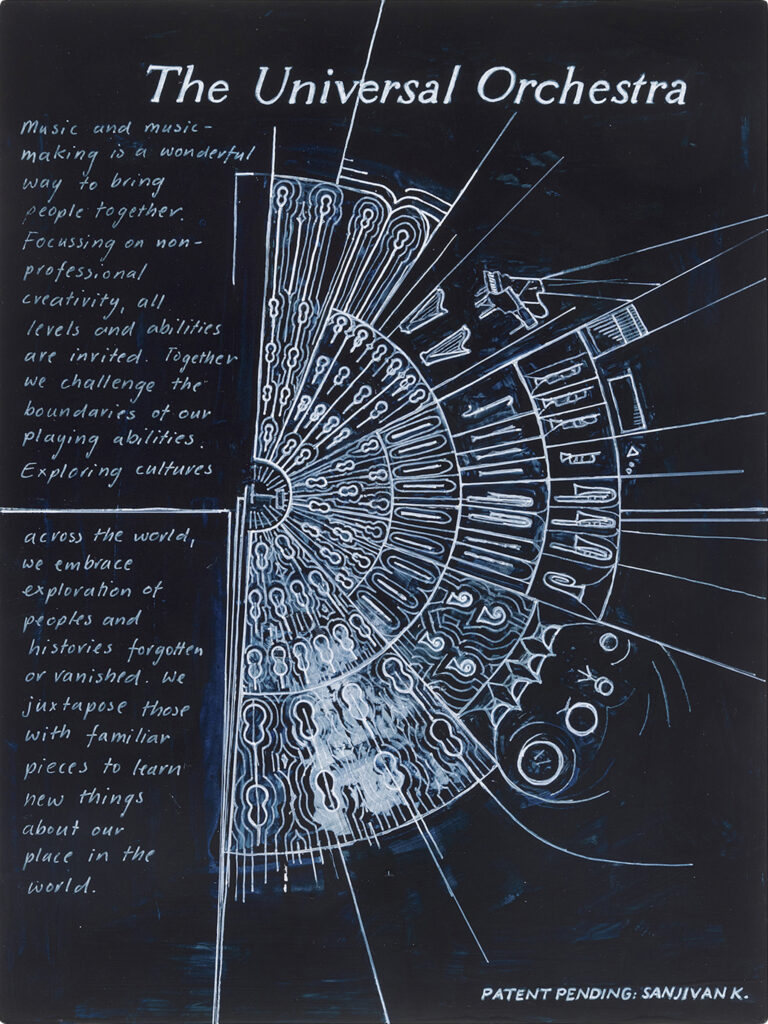 The Universal Orchestra
Music and music-
making is a wonderful
way to bring
people together.
Focussing on non-
professional
creativity, all
levels and abilities
are invited. Together
we challenge the
boundaries of our
playing abilities.
Exploring cultures
across the world,
we embrace
exploration of
peoples and
histories forgotten
or vanished. We
juxtapose those
with familiar
pieces to learn
new things
about our
place in the
world.
PATENT PENDING: SANJIVAN K.